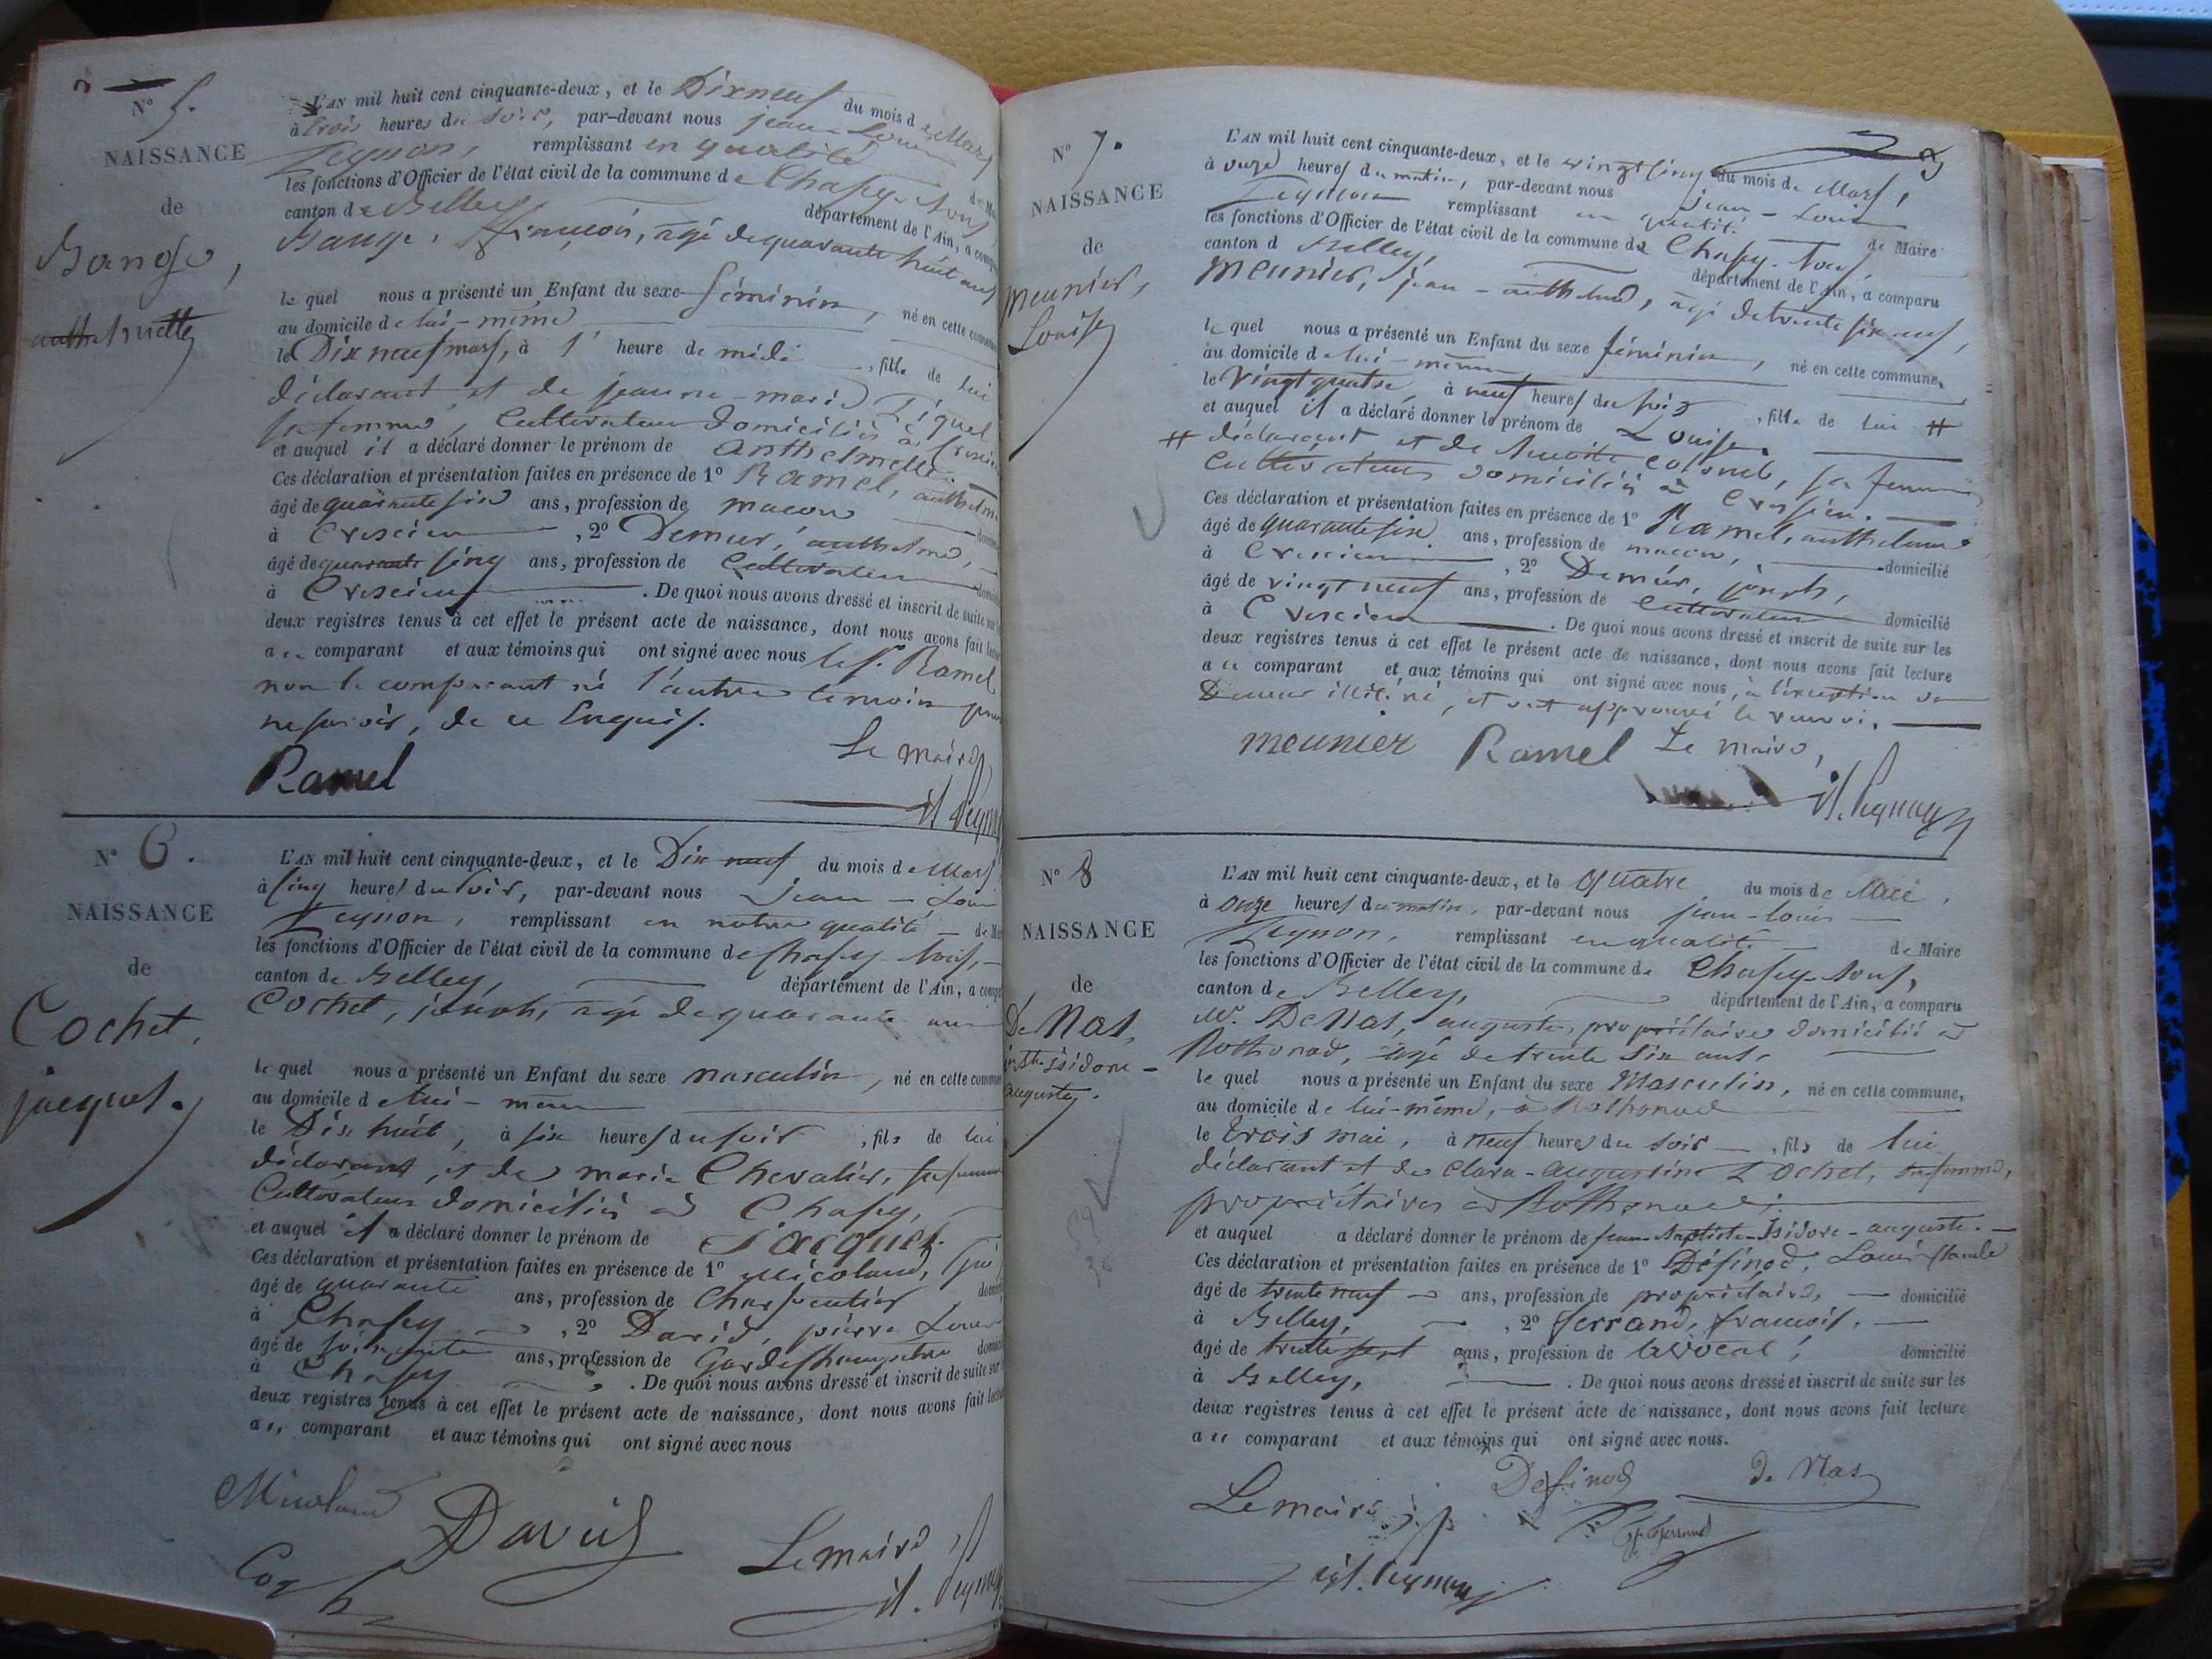 N° 5.
NAISSANCE
de
Bange,
anthelmette
L'AN mil huit cent cinquante-deux, et le Dixneuf du mois de Mars
à trois heures du soir, par-devant nous jean-Louis
Peysson, remplissant en qualité
les fonctions d'Officier de l'état civil de la commune de Chasey-
canton de Belley département de l'Ain, a
Bange, françois, agé de quarante huit ans
le quel nous a présenté un Enfant du sexe féminin, né en cette
au domicile de lui-même
le Dix neuf mars, à 1 heure de midi, fille de lui
déclarant et de jeanne-marie
sa femme, Cultivateurs domiciliés à
et auquel il a déclaré donner le prénom de anthelmette.
Ces déclaration et présentation faites en présence de 1° Ramel, anthelme
âgé de quarante six ans, profession de maçon
à Cressieu, 2° Demeur, anthelme,
âgé de quarante cinq ans, profession de Cultivateur
à Cressieu. De quoi nous avons dressé et inscrit de suite sur
deux registres tenus à cet effet le présent acte de naissance, dont nous avons fait
au comparant et aux témoins qui ont signé avec nous le s. Ramel
non le comparant ni l'autre temoin pour
ne savoir, de ce Enquis.
Ramel Le maire
N° 6.
NAISSANCE
de
Cochet,
jacques.
L'AN mil huit cent cinquante-deux, et le Dix neuf du mois de Mars
à cinq heures du soir, par-devant nous jean-Louis
remplissant en notre qualité de
les fonctions d'Officier de l'état civil de la commune de Chasey-
canton de Belley, département de l'Ain, a
Cochet, joseph, agé de quarante ans
le quel nous a présenté un Enfant du sexe masculin, né en cette
au domicile de lui-même
le Dix huit, à six heures du soir, fils de lui
déclarant, et de marie Chevalier, sa femme
Cultivateurs domiciliés à Chasey,
et auquel il a déclaré donner le prénom de Jacques.
Ces déclaration et présentation faites en présence de 1° Micoland,
âgé de quarante ans, profession de Charpentier
à Chasey, 2° David, pierre Louis
âgé de soixante ans, profession de Gardechampetre
à Chasey. De quoi nous avons dressé et inscrit de suite sur
deux registres tenus à cet effet le présent acte de naissance, dont nous avons fait
au comparant et aux témoins qui ont signé avec nous
Micoland
David
Le maire
N° 7.
NAISSANCE
de
meunier,
Louise
L'AN mil huit cent cinquante-deux, et le vingt cinq du mois de Mars,
à onze heures du matin, par-devant nous jean-Louis
remplissant en qualité de Maire
les fonctions d'Officier de l'état civil de la commune de Chasey-
canton d Belley, département de l'Ain, a comparu
meunier, jean-anthelme, agé de trente six ans,
le quel nous a présenté un Enfant du sexe féminin, né en cette commune,
au domicile de lui-même
le vingt quatre, à neuf heures du soir, fille de lui #
et auquel il a déclaré donner le prénom de Louise.
# déclarant et de Benoite sa femme
Cultivateurs domiciliés à Cressieu.
Ces déclaration et présentation faites en présence de 1° Ramel, anthelme
âgé de quarante six ans, profession de maçon, domicilié
à Cressieu, 2° Demeur, joseph,
âgé de vingt neuf ans, profession de Cultivateur domicilié
à Cressieu. De quoi nous avons dressé et inscrit de suite sur les
deux registres tenus à cet effet le présent acte de naissance, dont nous avons fait lecture
au comparant et aux témoins qui ont signé avec nous, à l'exception de
Demeur illitéré, et ont approuvé le renvoi.
meunier Ramel Le maire,
N° 8
NAISSANCE
de
De Nas,
isidore-
auguste.
L'AN mil huit cent cinquante-deux, et le quatre du mois de Mai,
à onze heures du matin, par-devant nous jean-louis
remplissant en qualité de Maire
les fonctions d'Officier de l'état civil de la commune de Chasey-
canton de Belley, département de l'Ain, a comparu
Mr. De Nas, auguste, propriétaire domicilié à
Rothonod, agé de trente Six ans,
le quel nous a présenté un Enfant du sexe Masculin, né en cette commune,
au domicile de lui-même, à Rothonod
le trois mai, à neuf heures du soir, fils de lui
déclarant et de Clara-augustine Lochet, sa femme,
propriétaires à Rothonod;
et auquel a déclaré donner le prénom de Jean-Baptiste-Isidore-auguste.
Ces déclaration et présentation faites en présence de 1° Désinod, Louis
âgé de trente neuf ans, profession de propriétaire, domicilié
à Belley, 2° ferrand, françois,
âgé de trente sept ans, profession de avocat, domicilié
à Belley, . De quoi nous avons dressé et inscrit de suite sur les
deux registres tenus à cet effet le présent acte de naissance, dont nous avons fait lecture
au comparant et aux témoins qui ont signé avec nous.
Le maire Désinod de Nas